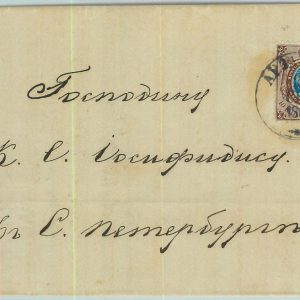 Господину
К. С. Іосифидису
въ С. Петербургѣ